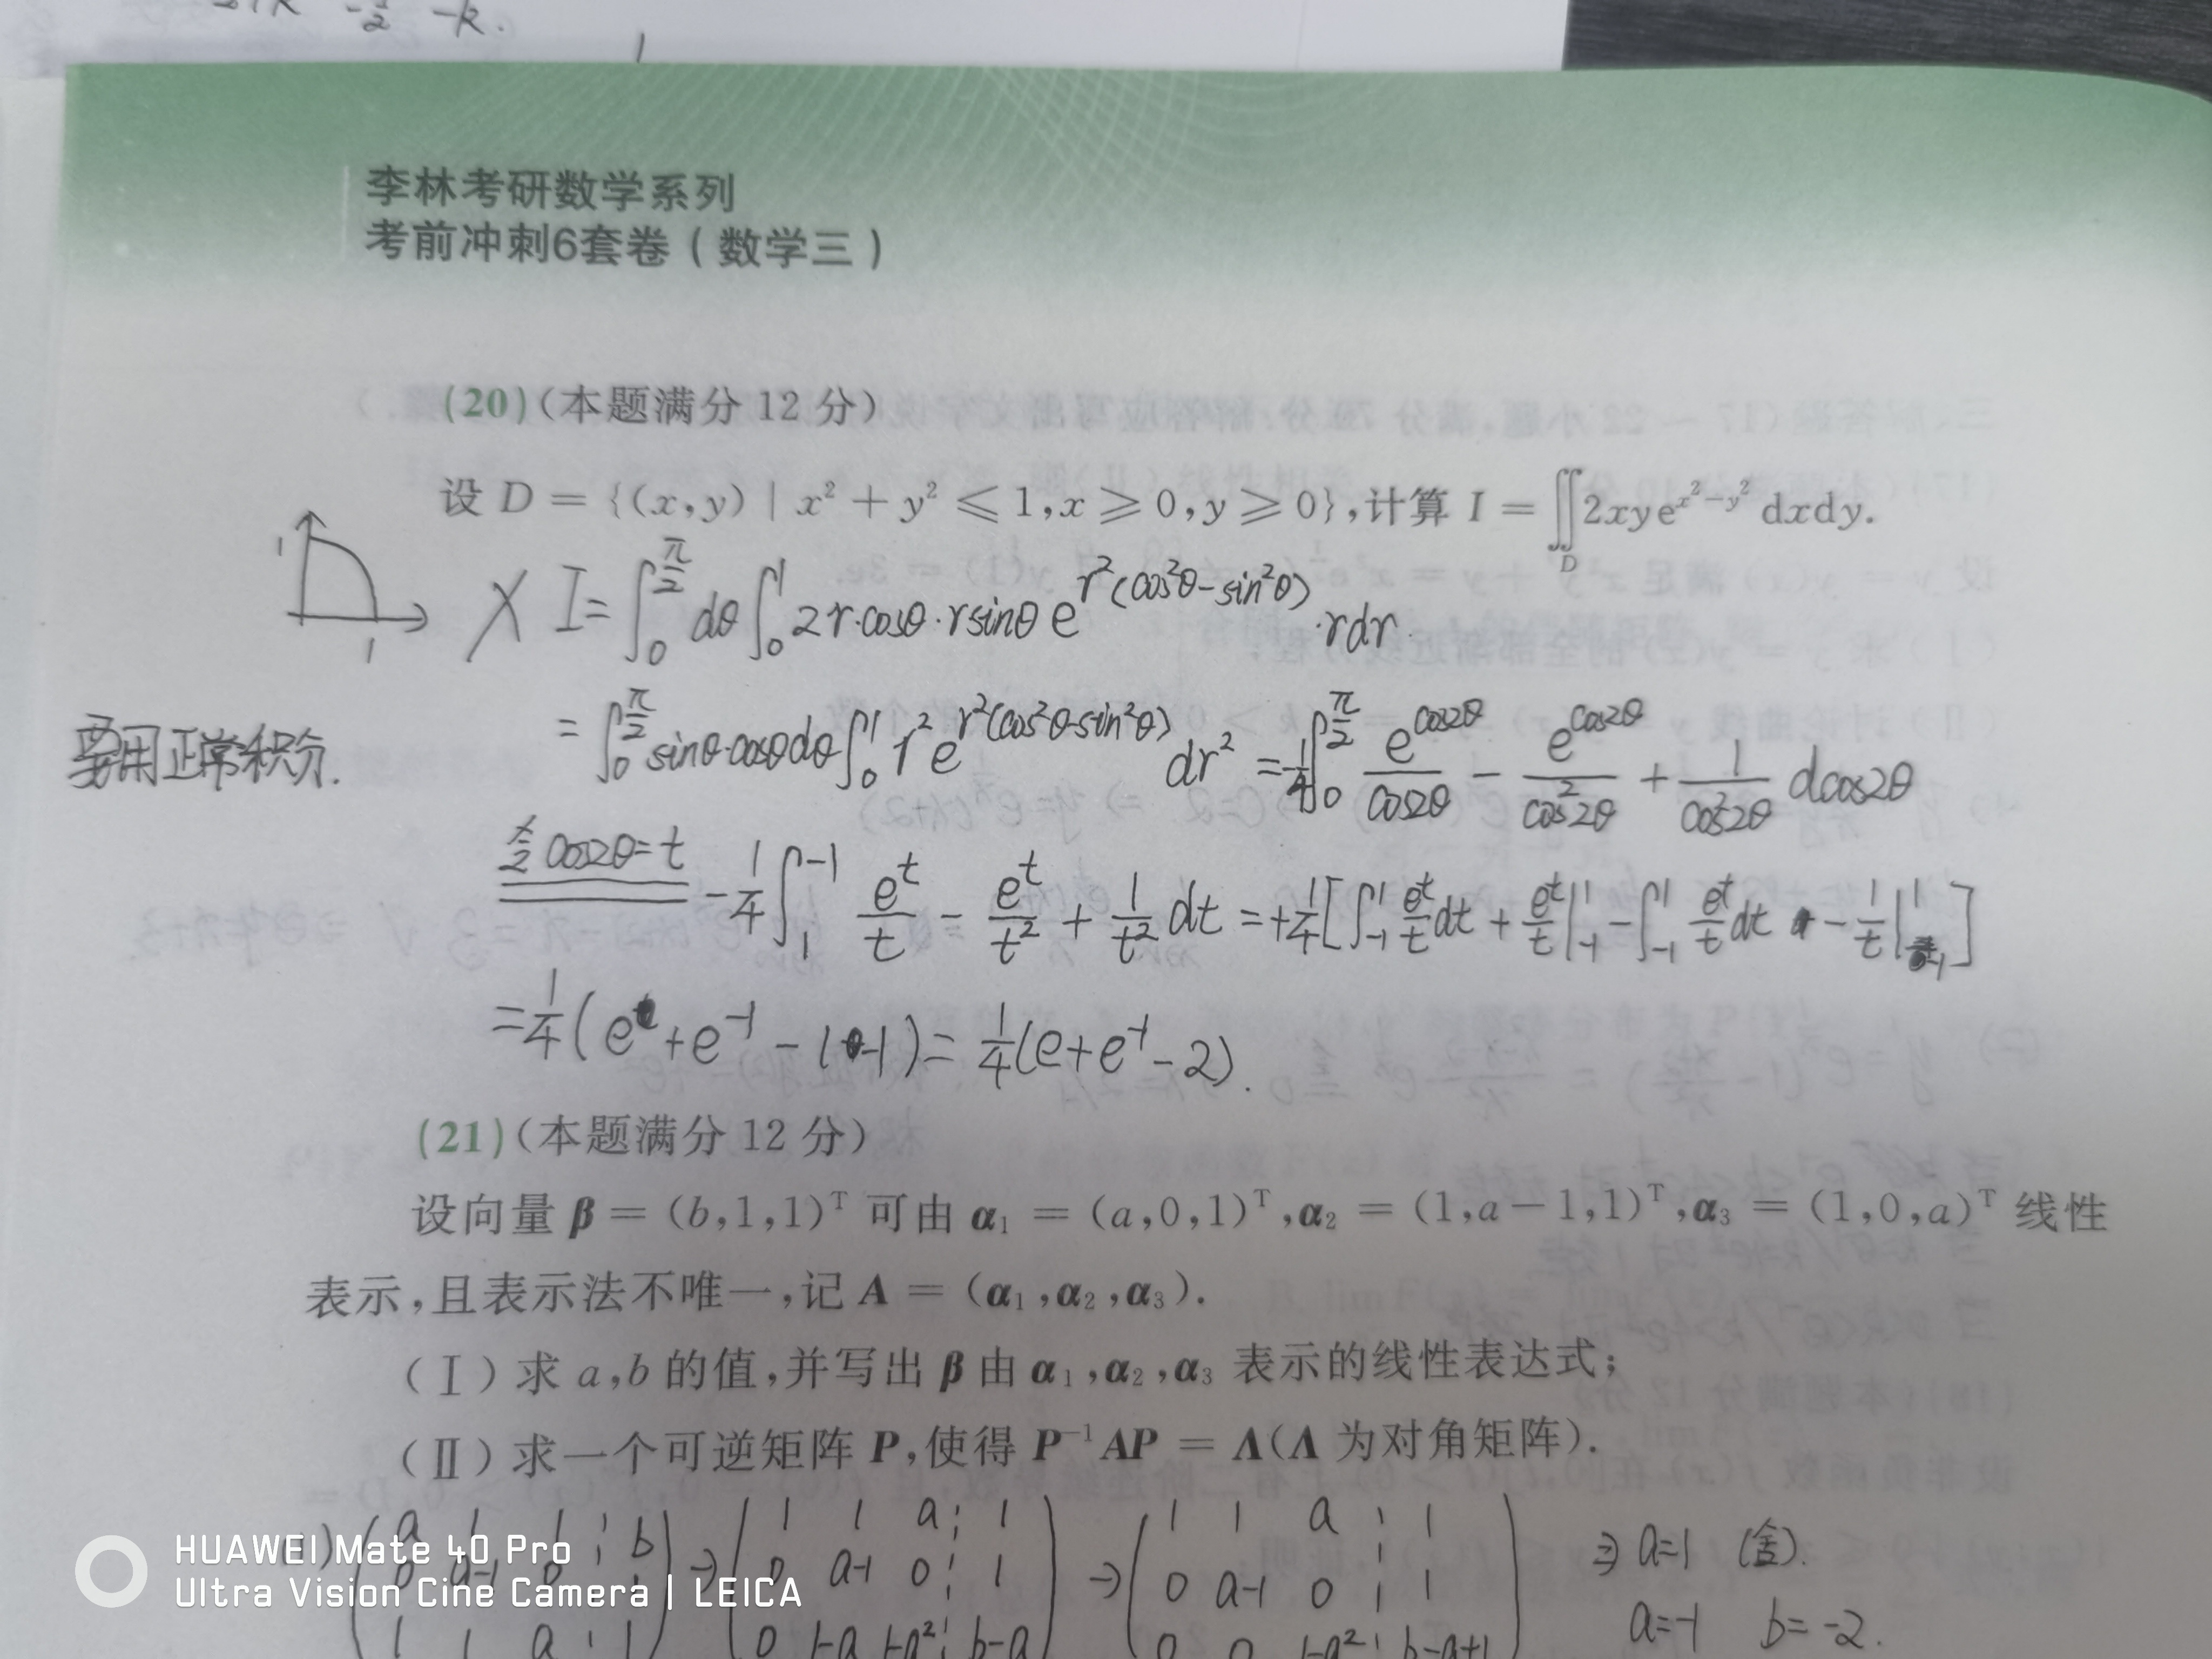 -k.
李林考研数学系列
考前冲刺6套卷(数学三)
(20)(本题满分 12 分)
设 D = {(x,y) | x² + y² ⩽ 1, x ⩾ 0, y ⩾ 0}, 计算 I = ∬_D 2xye^{x²-y²} dxdy.
1
1
X I = ∫₀^{π/2} dθ ∫₀¹ 2r·cosθ·rsinθ e^{r²(cos²θ-sin²θ)}·rdr.
要用正常积分.
= ∫₀^{π/2} sinθ·cosθdθ ∫₀¹ r² e^{r²(cos²θ-sin²θ)} dr² = -1/4 ∫₀^{π/2} e^{cos2θ}/cos2θ - e^{cos2θ}/cos²2θ + 1/cos²2θ dcos2θ
令 cos2θ=t -1/4 ∫₁^{-1} e^t/t - e^t/t² + 1/t² dt = +1/4[∫₋₁¹ e^t/t dt + e^t/t |₋₁¹ - ∫₋₁¹ e^t/t dt - 1/t |₋₁¹]
= 1/4(e + e⁻¹ - 1 - 1) = 1/4(e+e⁻¹-2).
(21)(本题满分 12 分)
设向量 β = (b,1,1)ᵀ 可由 α₁ = (a,0,1)ᵀ, α₂ = (1,a-1,1)ᵀ, α₃ = (1,0,a)ᵀ 线性
表示,且表示法不唯一,记 A = (α₁,α₂,α₃).
(Ⅰ)求 a,b 的值,并写出 β 由 α₁,α₂,α₃ 表示的线性表达式;
(Ⅱ)求一个可逆矩阵 P,使得 P⁻¹AP = Λ(Λ 为对角矩阵).
a 1 1 b → 1 1 a 1 → 1 1 a 1 ⇒ a=1 (舍).
0 a-1 0 1 0 a-1 0 1 0 a-1 0 1
1 1 a 1 0 1-a 1-a² b-a 0 0 1-a² b-a+1 a=-1 b=-2.
HUAWEI Mate 40 Pro
Ultra Vision Cine Camera | LEICA